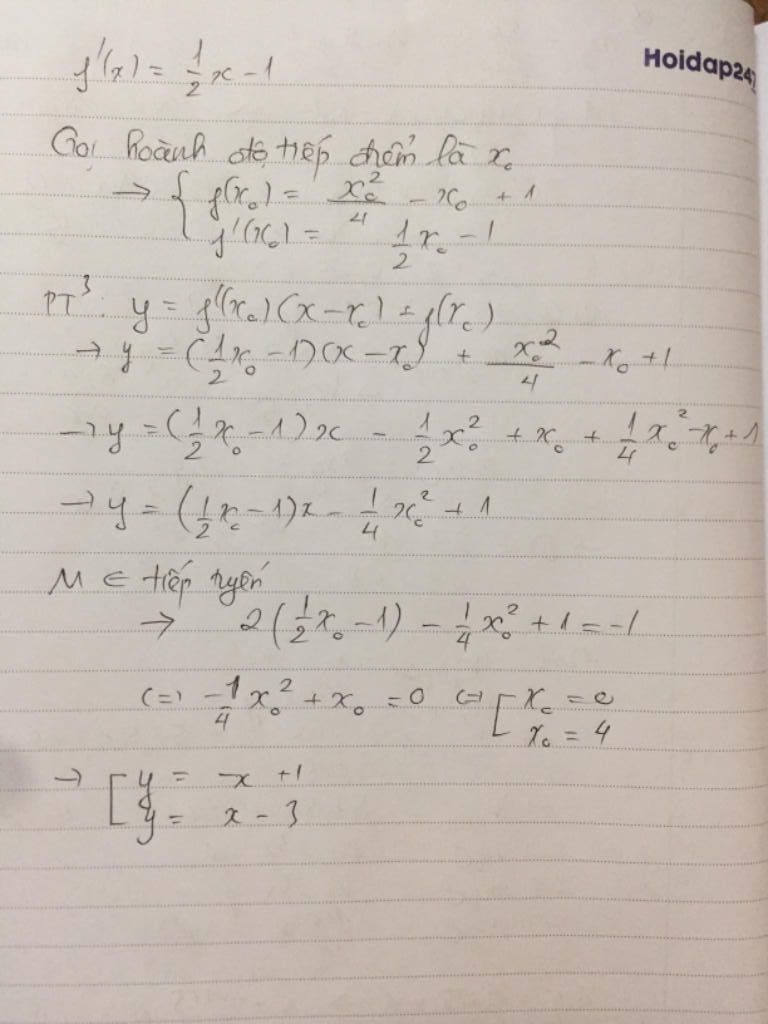 Hoidap247
f'(x) = 1/2 x - 1
Gọi hoành độ tiếp điểm là x₀
→ { f(x₀) = x₀²/4 - x₀ + 1
f'(x₀) = 1/2 x₀ - 1
PT³: y = f'(x₀)(x - x₀) + f(x₀)
→ y = (1/2 x₀ - 1)(x - x₀) + x₀²/4 - x₀ + 1
→ y = (1/2 x₀ - 1)x - 1/2 x₀² + x₀ + 1/4 x₀² - x₀ + 1
→ y = (1/2 x₀ - 1)x - 1/4 x₀² + 1
M ∈ tiếp tuyến
→ 2(1/2 x₀ - 1) - 1/4 x₀² + 1 = -1
(=) -1/4 x₀² + x₀ = 0 (=) [ x₀ = 0
x₀ = 4
→ [ y = -x + 1
y = x - 3